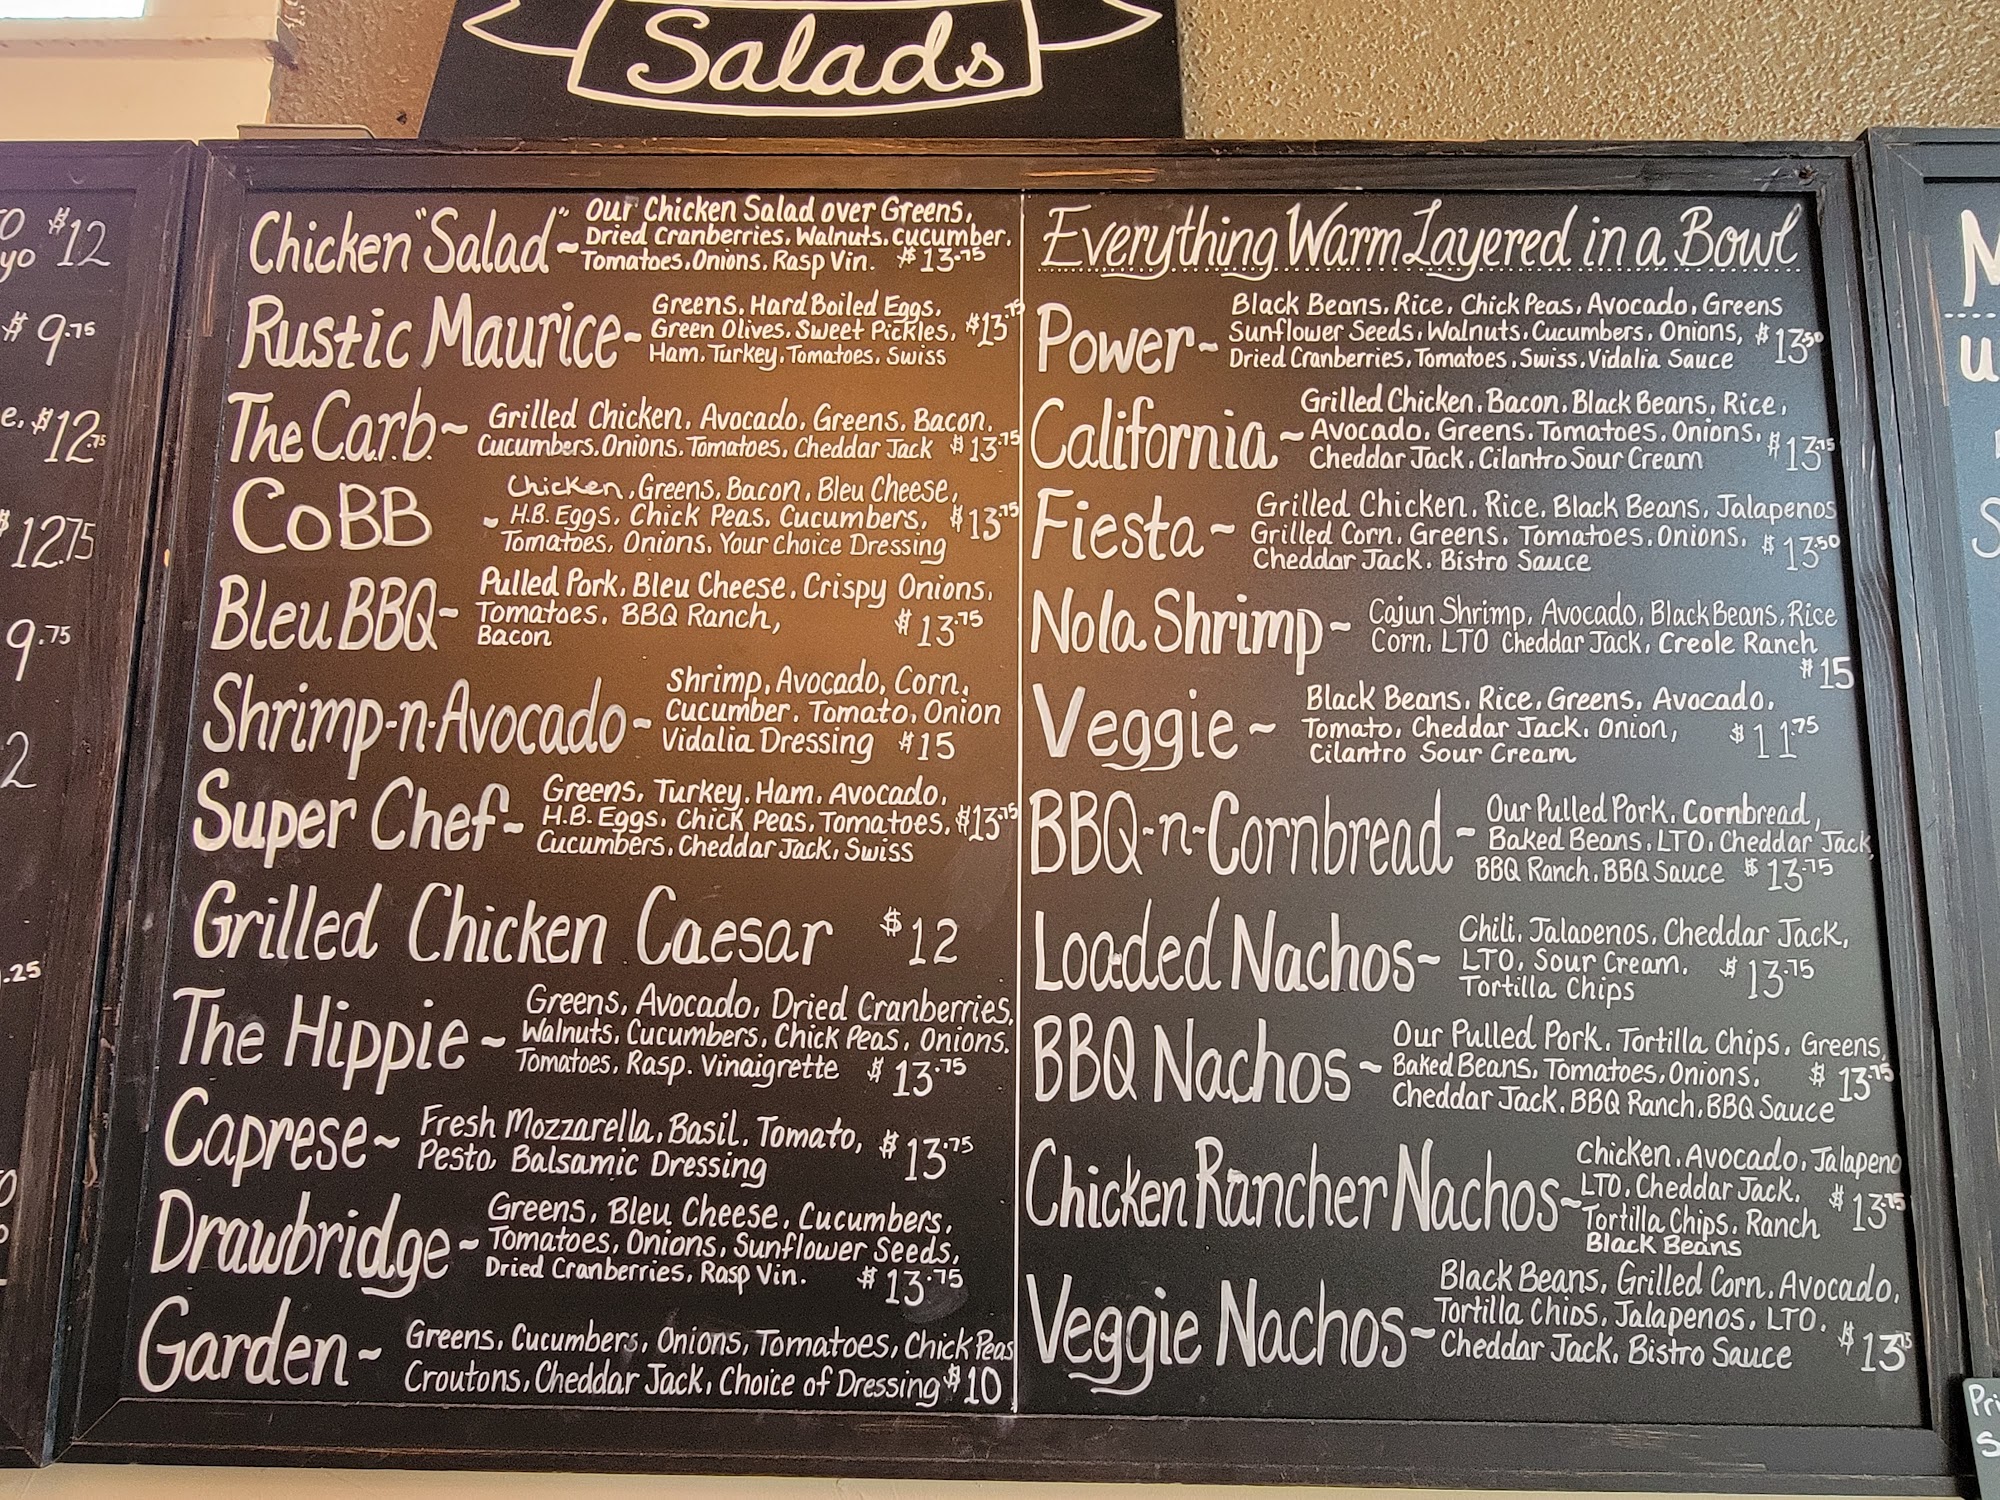 Salads
Chicken "Salad" ~ Our Chicken Salad over Greens,
Dried Cranberries, Walnuts, Cucumber,
Tomatoes, Onions, Rasp Vin. $13.75
Rustic Maurice - Greens, Hard Boiled Eggs,
Green Olives, Sweet Pickles, $13.75
Ham, Turkey, Tomatoes, Swiss
The C.a.r.b. ~ Grilled Chicken, Avocado, Greens, Bacon,
Cucumbers, Onions, Tomatoes, Cheddar Jack $13.75
CoBB ~ Chicken, Greens, Bacon, Bleu Cheese,
H.B. Eggs, Chick Peas, Cucumbers, $13.75
Tomatoes, Onions, Your Choice Dressing
Bleu BBQ ~ Pulled Pork, Bleu Cheese, Crispy Onions,
Tomatoes, BBQ Ranch, $13.75
Bacon
Shrimp-n-Avocado ~ Shrimp, Avocado, Corn,
Cucumber, Tomato, Onion
Vidalia Dressing $15
Super Chef ~ Greens, Turkey, Ham, Avocado,
H.B. Eggs, Chick Peas, Tomatoes, $13.75
Cucumbers, Cheddar Jack, Swiss
Grilled Chicken Caesar $12
The Hippie ~ Greens, Avocado, Dried Cranberries,
Walnuts, Cucumbers, Chick Peas, Onions,
Tomatoes, Rasp. Vinaigrette $13.75
Caprese ~ Fresh Mozzarella, Basil, Tomato, $13.75
Pesto, Balsamic Dressing
Drawbridge ~ Greens, Bleu Cheese, Cucumbers,
Tomatoes, Onions, Sunflower Seeds,
Dried Cranberries, Rasp Vin. $13.75
Garden ~ Greens, Cucumbers, Onions, Tomatoes, Chick Peas
Croutons, Cheddar Jack, Choice of Dressing $10
Everything Warm Layered in a Bowl
Power ~ Black Beans, Rice, Chick Peas, Avocado, Greens
Sunflower Seeds, Walnuts, Cucumbers, Onions, $13.50
Dried Cranberries, Tomatoes, Swiss, Vidalia Sauce
California ~ Grilled Chicken, Bacon, Black Beans, Rice,
Avocado, Greens, Tomatoes, Onions, $13.75
Cheddar Jack, Cilantro Sour Cream
Fiesta ~ Grilled Chicken, Rice, Black Beans, Jalapenos
Grilled Corn, Greens, Tomatoes, Onions, $13.50
Cheddar Jack, Bistro Sauce
Nola Shrimp ~ Cajun Shrimp, Avocado, Black Beans, Rice
Corn, LTO Cheddar Jack, Creole Ranch
$15
Veggie ~ Black Beans, Rice, Greens, Avocado,
Tomato, Cheddar Jack, Onion, $11.75
Cilantro Sour Cream
BBQ-n-Cornbread ~ Our Pulled Pork, Cornbread,
Baked Beans, LTO, Cheddar Jack,
BBQ Ranch, BBQ Sauce $13.75
Loaded Nachos ~ Chili, Jalapenos, Cheddar Jack,
LTO, Sour Cream, $13.75
Tortilla Chips
BBQ Nachos ~ Our Pulled Pork, Tortilla Chips, Greens,
Baked Beans, Tomatoes, Onions, $13.75
Cheddar Jack, BBQ Ranch, BBQ Sauce
Chicken Rancher Nachos ~ Chicken, Avocado, Jalapeno
LTO, Cheddar Jack, $13.75
Tortilla Chips, Ranch
Black Beans
Veggie Nachos ~ Black Beans, Grilled Corn, Avocado,
Tortilla Chips, Jalapenos, LTO,
Cheddar Jack, Bistro Sauce $13.75
$12
$9.75
$12.75
$12.75
9.75
.25